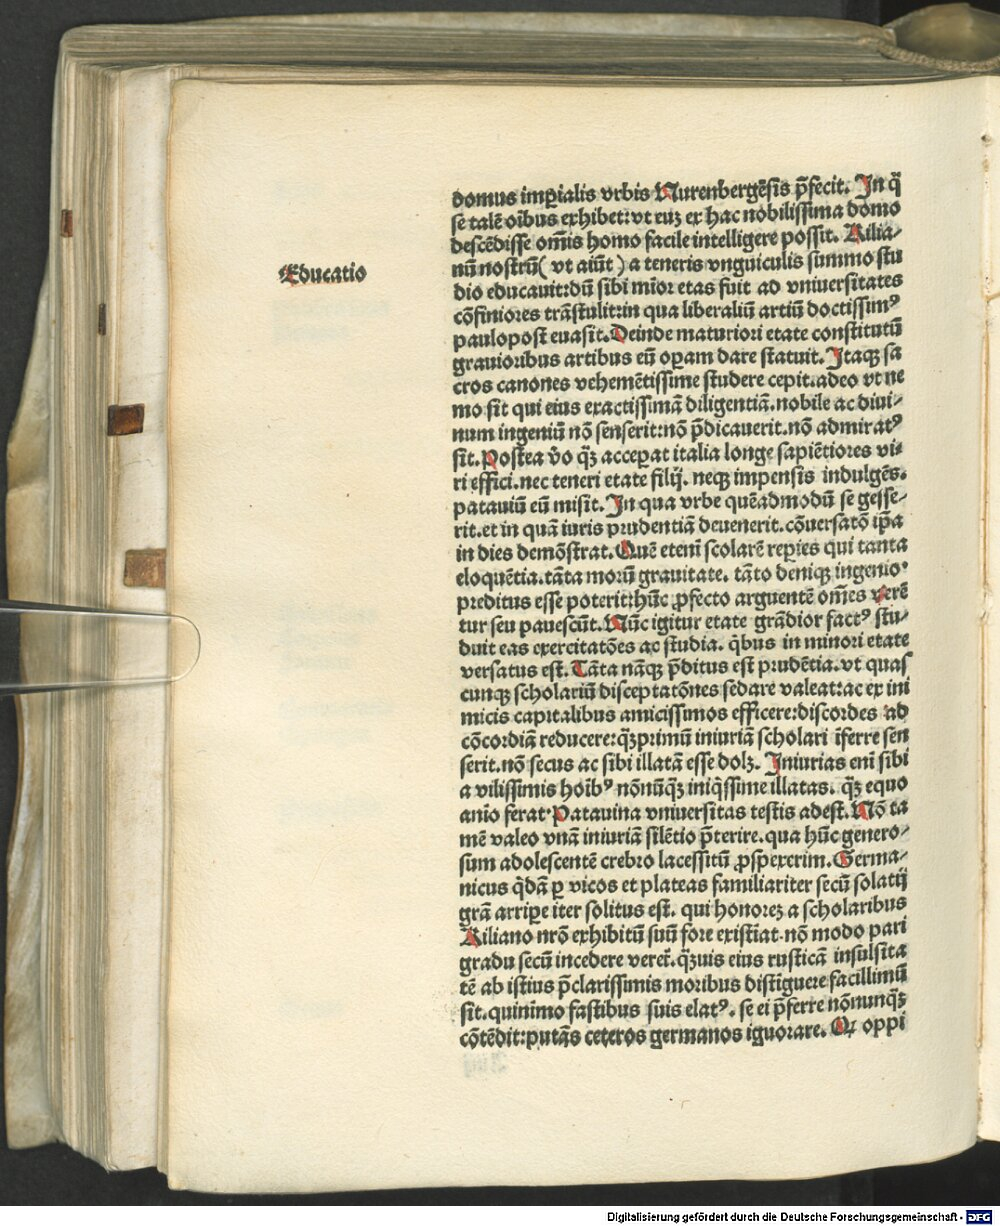 Educatio
domus imꝑialis vrbis Nurenbergēsis p̄fecit. In q̄
se talē oībus exhibet: vt euꝫ ex hac nobilissima domo
descēdisse om̄is homo facile intelligere possit. Kilia-
nū nostrū( vt aiūt ) a teneris vnguiculis summo stu
dio educauit: dū sibi mīor etas fuit ad vniuersitates
cōfiniores trāstulit: in qua liberaliū artiū doctissimꝰ
paulopost euasit. Deinde maturiori etate constitutū
grauioribus artibus eū oꝑam dare statuit. Itaqꝫ sa
cros canones vehemētissime studere cepit. adeo vt ne
mo sit qui eius exactissimā diligentiā. nobile ac diui-
num ingeniū nō senserit: nō p̄dicauerit. nō admiratꝰ
sit. Postea v̄o qꝫ acceꝑat italia longe sapiētiores vi-
ri effici. nec teneri etate filij. neqꝫ impensis indulgēs.
patauiū eū misit. In qua vrbe quēadmodū se gesse-
rit. et in quā iuris prudentiā deuenerit. cōuersatō ip̄a
in dies demōstrat. Quē etenī scolarē reꝑies qui tanta
eloquētia. tāta morū grauitate. tāto deniqꝫ ingenio
preditus esse poterit: hūc ꝓfecto arguentē om̄es verē
tur seu pauescūt. Nūc igitur etate grādior factꝰ stu-
duit eas exercitatōes ac studia. q̄bus in minori etate
versatus est. Tāta nāqꝫ p̄ditus est prudētia. vt quas
cunqꝫ scholariū disceptatōnes sedare valeat: ac ex ini
micis capitalibus amicissimos efficere: discordes ad
cōcordiā reducere: qꝫprimū iniuriā scholari īferre sen
serit. nō secus ac sibi illatā esse dolꝫ. Iniurias enī sibi
a vilissimis hoībꝰ nōnūqꝫ iniq̄ssime illatas. qꝫ equo
anīo ferat. Patauina vniuersitas testis adest. Nō ta
mē valeo vnā iniuriā silētio p̄terire. qua hūc genero-
sum adolescentē crebro lacessitū ꝓspexerim. Germa-
nicus q̄dā ꝑ vicos et plateas familiariter secū solatij
grā arriꝑe iter solitus est. qui honoreꝫ a scholaribus
Kiliano nrō exhibitū suū fore existīat. nō modo pari
gradu secū incedere veret̄. qꝫuis eius rusticā insulsita
tē ab istius p̄clarissimis moribus distīguere facillimū
sit. quinimo fastibus suis elatꝰ. se ei p̄ferre nōnunqꝫ
cōtēdit: putās ceteros germanos ignorare. Q oppi
Digitalisierung gefördert durch die Deutsche Forschungsgemeinschaft - DFG